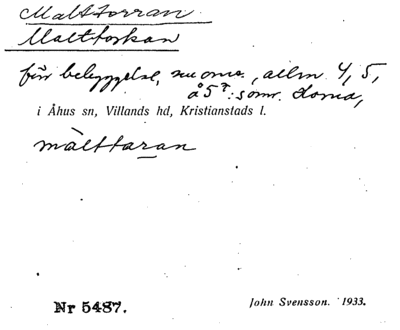 Malttorran
Malttorkan
förr bebyggelse, nu omr., allm. 4, 5,
å 5⁷: som. Lorna,
i Åhus sn, Villands hd, Kristianstads l.
màlttaran
Nr 5487.
John Svensson. 1933.